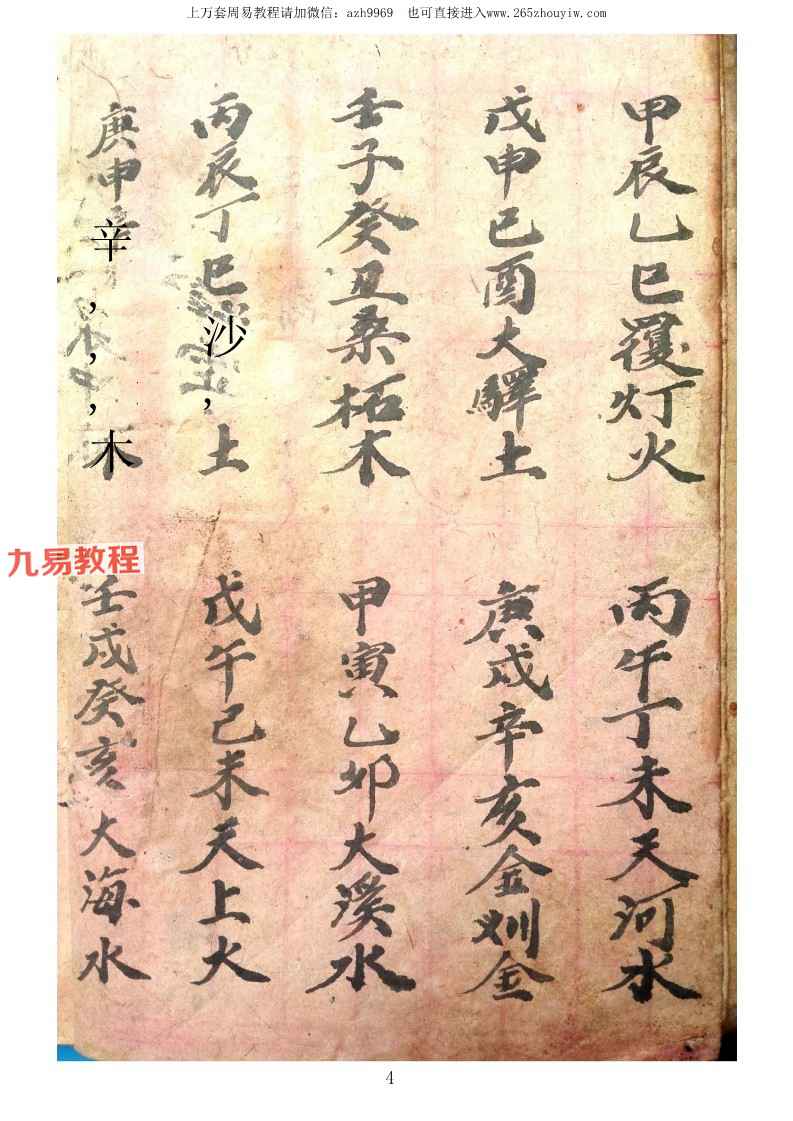 上万套周易教程请加微信：azh9969 也可直接进入www.265zhouyiw.com
甲辰乙巳覆灯火
丙午丁未天河水
戊申已酉大驛土
庚戌辛亥金釧金
壬子癸丑桑柘木
甲寅乙卯大溪水
丙辰丁巳沙，土
戊午己未天上火
庚申辛，，，木
壬戌癸亥大海水
九易教程
4